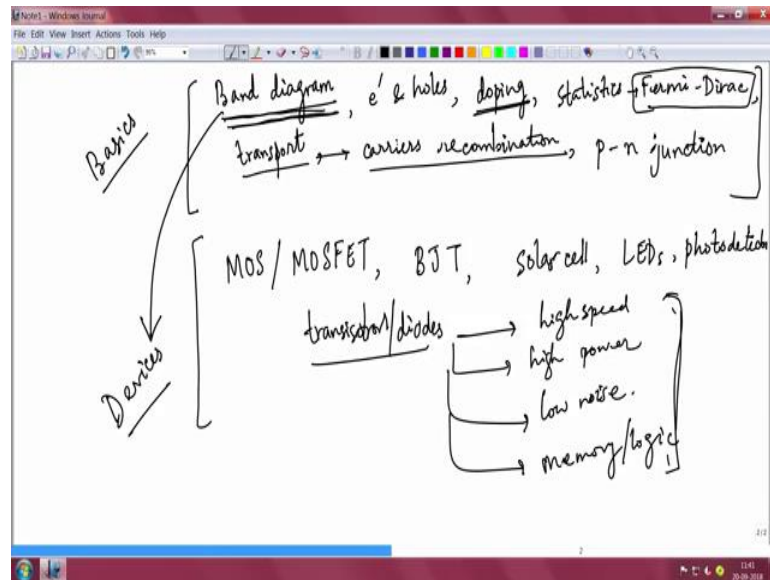 Note1 - Windows Journal
File Edit View Insert Actions Tools Help
Basics
Band diagram, e' & holes, doping, statistics → Fermi-Dirac,
transport, → carriers recombination, p-n junction
Devices
MOS/MOSFET, BJT, Solar cell, LEDs, photodetectors
transistors/diodes → high speed
→ high power
→ low noise.
→ memory/logic
2/2
2
11:41
20-09-2018